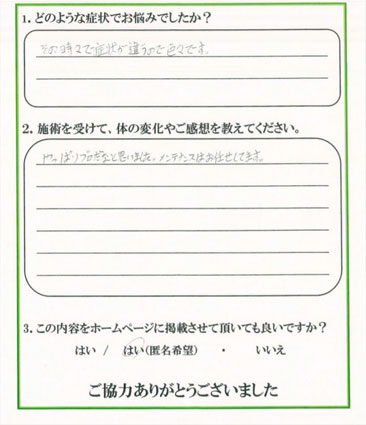 1. どのような症状でお悩みでしたか？
その時々で症状が違うので色々です。
2. 施術を受けて、体の変化やご感想を教えてください。
やっぱりプロだなと思いました。メンテナンスはお任せしてます。
3. この内容をホームページに掲載させて頂いても良いですか？
はい / はい(匿名希望) ・ いいえ
ご協力ありがとうございました